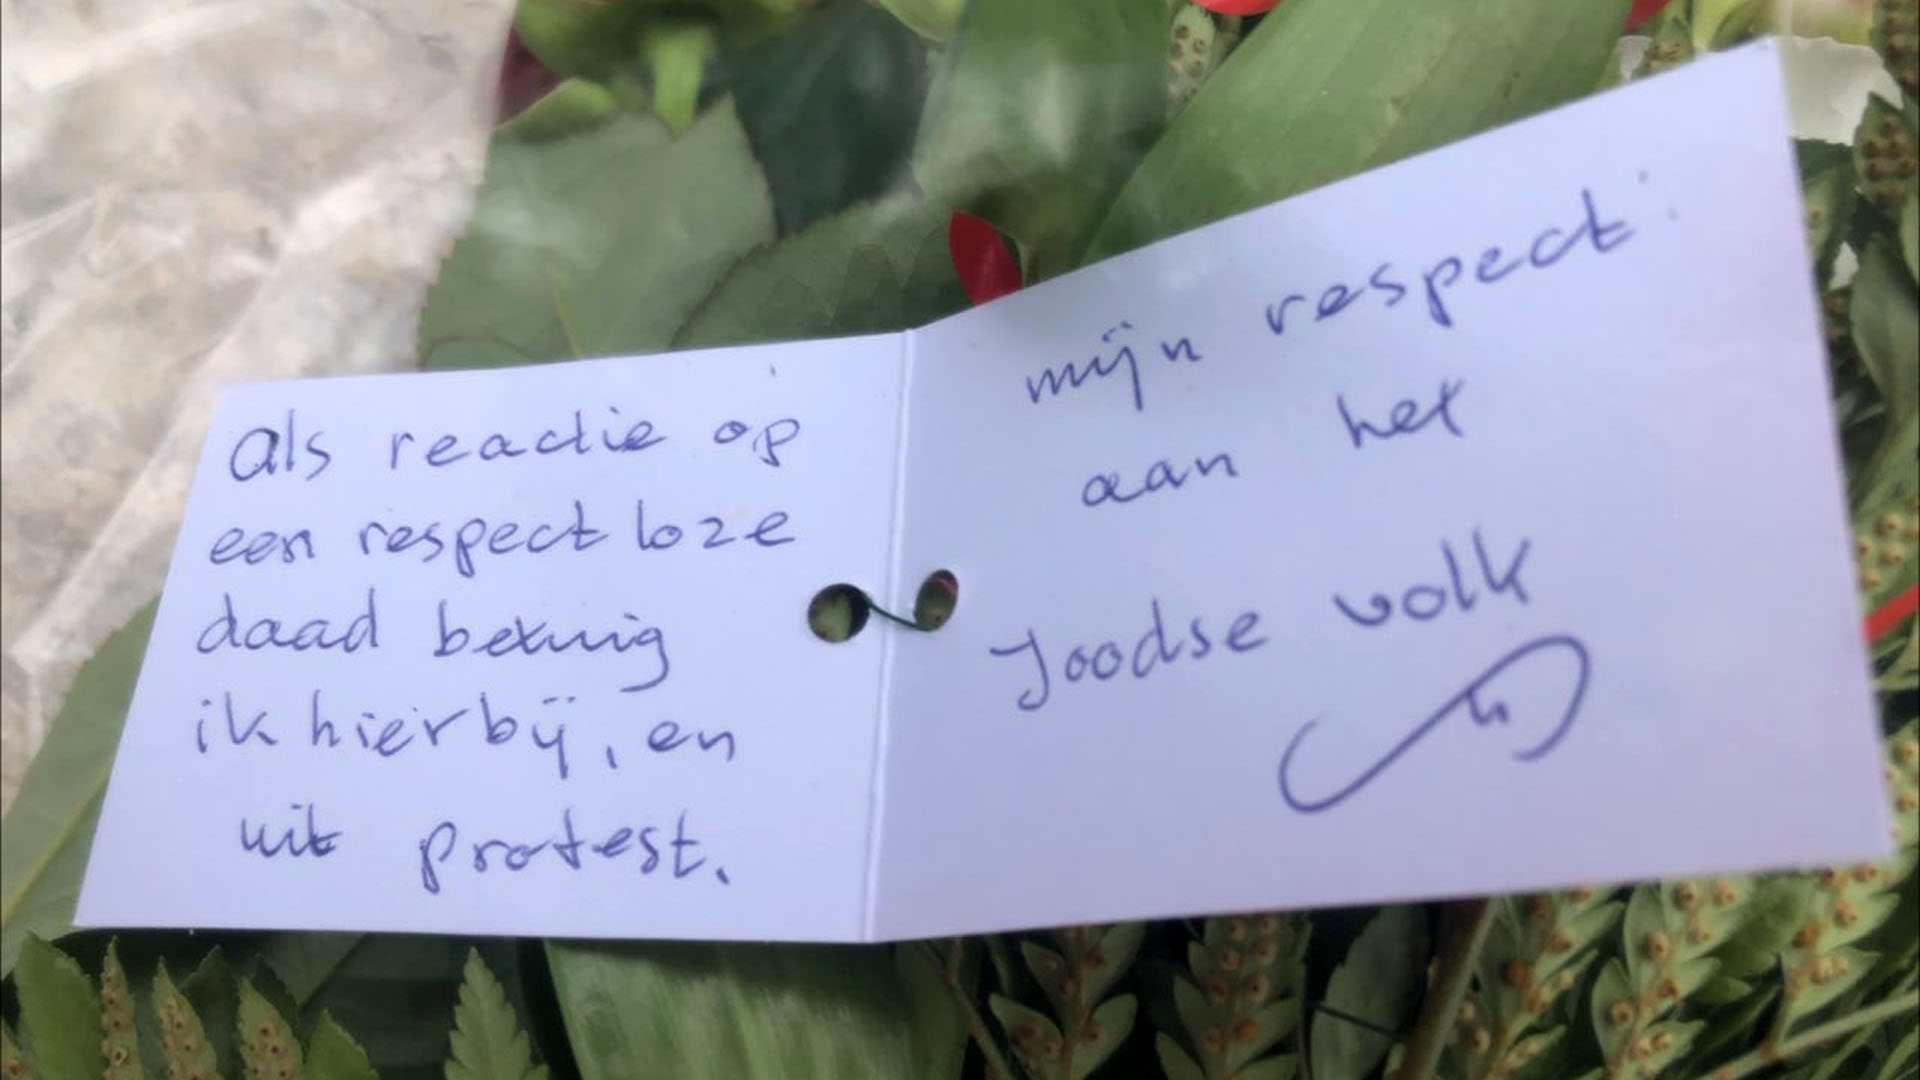 als reactie op
een respectloze
daad betuig
ik hierbij, en
uit protest.
mijn respect
aan het
Joodse volk